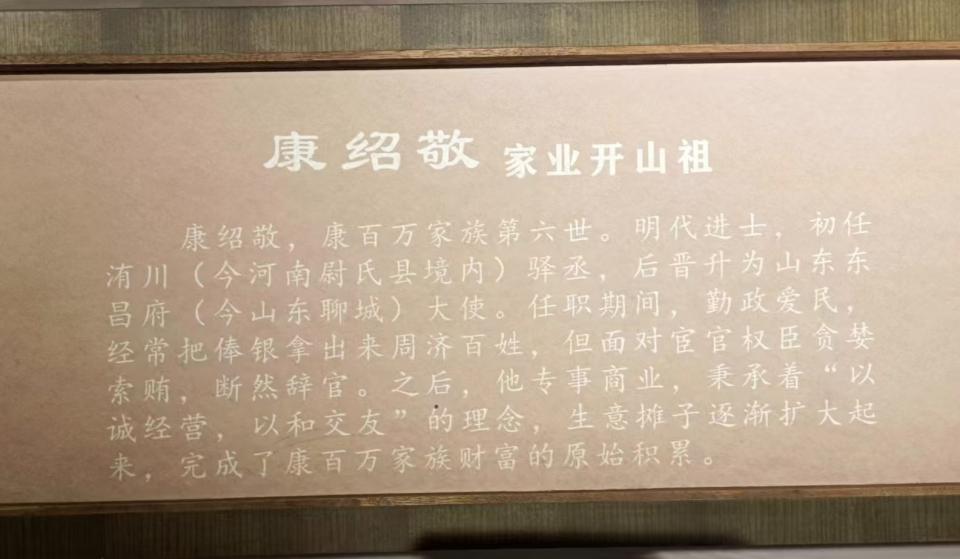 康绍敬 家业开山祖
康绍敬，康百万家族第六世。明代进士，初任
洧川（今河南尉氏县境内）驿丞，后晋升为山东东
昌府（今山东聊城）大使。任职期间，勤政爱民，
经常把俸银拿出来周济百姓，但面对宦官权臣贪婪
索贿，断然辞官。之后，他专事商业，秉承着“以
诚经营，以和交友”的理念，生意摊子逐渐扩大起
来，完成了康百万家族财富的原始积累。